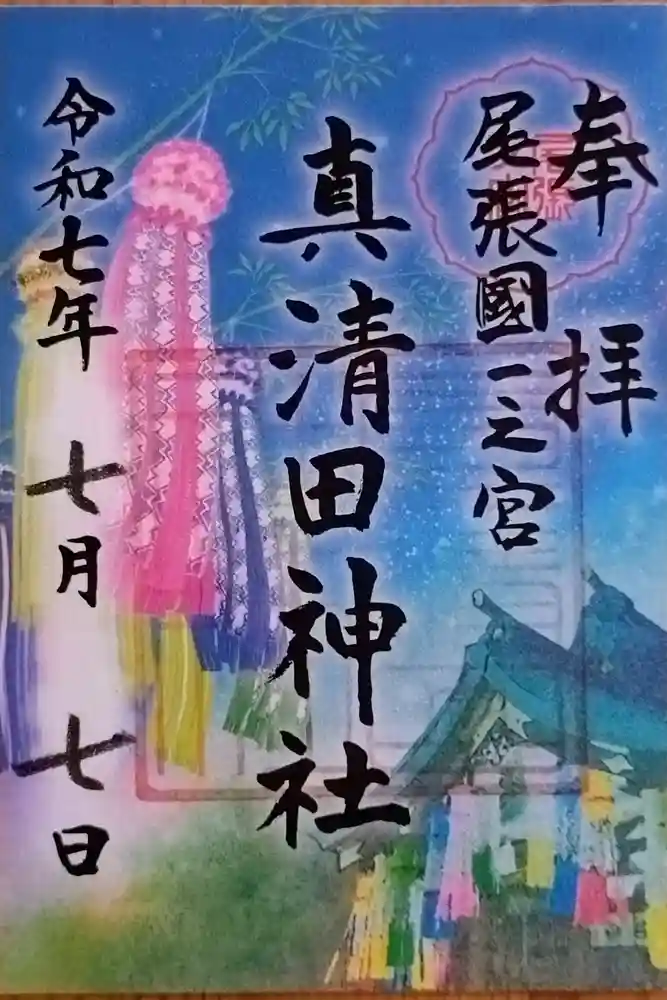 奉拝
尾張國一之宮
真清田神社
令和七年七月七日